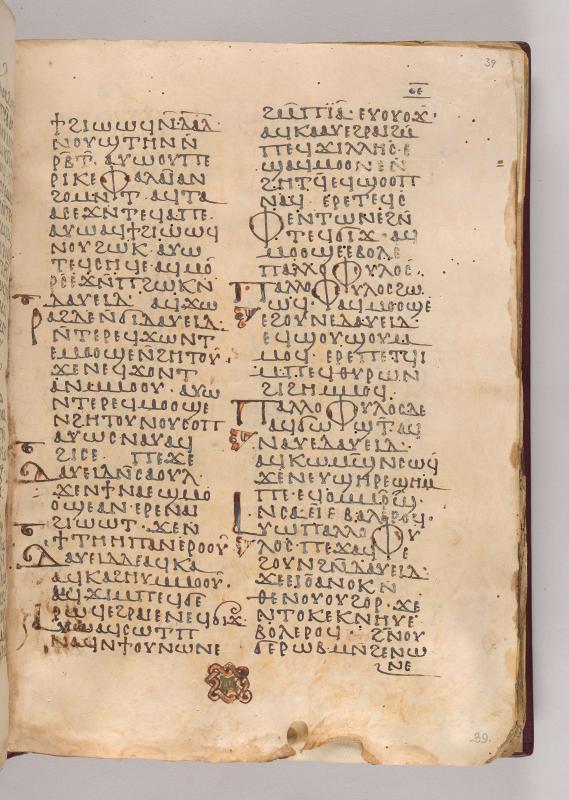 ϯϩⲓⲱⲱϥⲛ̄ⲇⲁⲇ
ⲛⲟⲩϣⲧⲏⲛⲛ̄
ⲁⲩⲱⲟⲩⲡⲉ
ⲣⲓⲕⲉⲫⲁⲗⲁⲓⲁⲛ
ϩⲟⲙⲛ̄ⲧ· ⲁϥⲧⲁ
ⲁⲥⲉϫⲛ̄ⲧⲉϥⲁⲡⲉ·
ⲁⲩⲱⲁϥϯϩⲓⲱⲱϥ
ⲛⲟⲩϩⲱⲕ· ⲁⲩⲱ
ⲧⲉϥⲥⲏϥⲉ· ⲁϥⲙⲟ
ⲣⲥ̄ⲉϫⲙ̄ⲡϩⲱⲕⲛ̄
ⲇⲁⲩⲉⲓⲇ· ⲁϥϫⲱ
ⲛ̄ϭⲓⲇⲁⲩⲉⲓⲇ·
ⲛ̄ⲧⲉⲣⲉϥϫⲱⲛⲧ
ⲉⲙⲟⲟϣⲉⲛ̄ϩⲏⲧⲟⲩ·
ϫⲉⲛⲉϥϫⲟⲛⲧ
ⲁⲛⲙ̄ⲙⲟⲟⲩ· ⲁⲩⲱ
ⲛⲧⲉⲣⲉϥⲙⲟⲟϣⲉ
ⲛϩⲏⲧⲟⲩⲛⲟⲩⲥⲟⲡ
ⲁⲩⲱⲥⲛⲁⲩⲁϥ
ϩⲓⲥⲉ· ⲡⲉϫⲉ
ⲇⲁⲩⲉⲓⲇⲛ̄ⲥⲁⲟⲩⲗ·
ϫⲉⲛϯⲛⲁⲉϣⲙⲟ
ⲟϣⲉⲁⲛⲉⲣⲉⲛⲁⲓ
ϩⲓⲱⲱⲧ· ϫⲉⲛ
ϯⲧⲏⲏⲡⲁⲛⲉⲣⲟⲟⲩ
ⲇⲁⲩⲉⲓⲇⲇⲉⲁϥⲕⲁ
ⲁϥⲕⲁϩⲏⲩⲙ̄ⲙⲟⲟⲩ·
ⲁϥϫⲓⲙ̄ⲡⲉϥϭⲉ
ⲣⲱϥⲉϩⲣⲁⲓⲉⲛⲉϥϭⲓϫ
ⲁⲩⲱⲁϥⲥⲱⲧⲡ
ⲛⲁϥⲛϯⲟⲩⲛⲱⲛⲉ
39
ⲟ̅ⲉ̅
ⲉⲩⲟⲩⲟϫ·
ⲁϥⲕⲁⲁⲩⲉϩⲣⲁⲓϩⲙ̄
ⲡⲉϥϫⲓⲗⲗⲏⲥ· ⲉ
ϣⲁϥⲙⲟⲟⲛⲉⲛ̄
ϩⲏⲧϥ̄ⲉϥϣⲟⲟⲡ
ⲛⲁϥ· ⲉⲣⲉⲧⲉϥⲥ
ⲫⲉⲛⲧⲱⲛⲉϩⲛ̄
ⲧⲉϥϭⲓϫ· ⲁϥ
ⲙⲟⲟϣⲉⲉⲃⲟⲗⲉ
ⲡⲁⲗⲗⲟⲫⲩⲗⲟⲥ·
ⲡⲁⲗⲗⲟⲫⲩⲗⲟⲥϩⲱ
ⲱϥ· ⲁϥⲙⲟⲟϣⲉ
ⲉϩⲟⲩⲛⲉⲇⲁⲩⲉⲓⲇ·
ⲉϥϣⲟⲩϣⲟⲩⲙ̄
ⲙⲟϥ· ⲉⲣⲉⲡⲉⲧϥⲓ
ⲙ̄ⲡⲉϥⲑⲩⲣⲱⲛ
ϩⲓϩⲏⲙ̄ⲙⲟϥ·
ⲡⲁⲗⲗⲟⲫⲩⲗⲟⲥⲇⲉ
ⲁϥϭⲱϣⲧ̄ⲁϥ
ⲛⲁⲩⲉⲇⲁⲩⲉⲓⲇ·
ⲁϥⲕⲱⲙϣ̄ⲛⲥⲱϥ
ϫⲉⲛⲉⲩϣⲏⲣⲉϣⲏⲙ
ⲡⲉ·
ⲛⲥⲁⲉⲓⲉⲃⲁⲗⲉⲣⲟϥ·
ⲁⲩⲱⲡⲁⲗⲗⲟⲫⲩ
ⲗⲟⲥ· ⲡⲉϫⲁϥⲉ
ϩⲟⲩⲛϩⲛ̄ⲇⲁⲩⲉⲓⲇ·
ϫⲉⲉⲓⲟⲁⲛⲟⲕⲛ̄
ⲑⲉⲛⲟⲩⲟⲩϩⲟⲣ· ϫⲉ
ⲛⲧⲟⲕⲉⲕⲛⲏⲩⲉ
ⲃⲟⲗⲉⲣⲟϥ· ϩⲛ̄ⲟⲩ
ϭⲉⲣⲱⲃⲙⲛ̄ϩⲉⲛⲱ
ⲛⲉ
39.